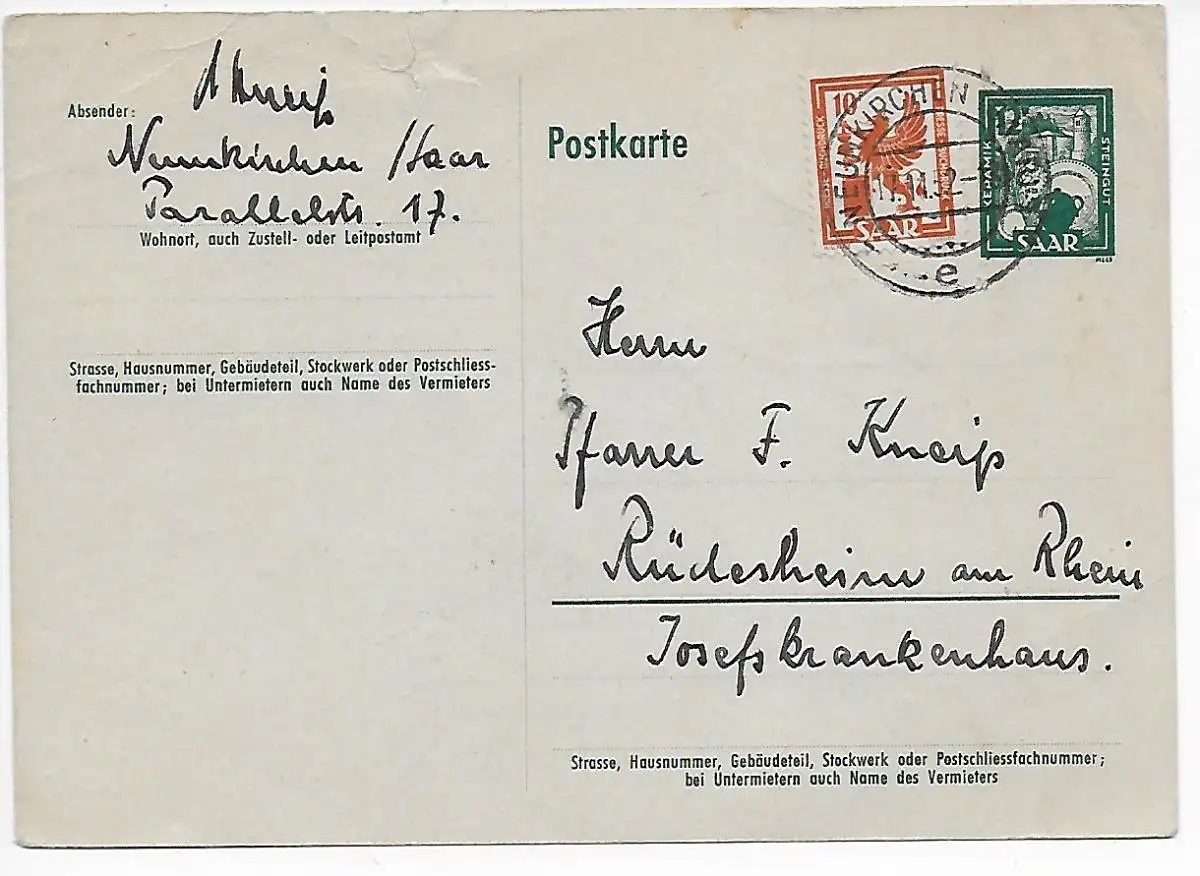 Absender:
Neunkirchen / Saar
Parallelstr. 17.
Wohnort, auch Zustell- oder Leitpostamt
Strasse, Hausnummer, Gebäudeteil, Stockwerk oder Postschliess-
fachnummer; bei Untermietern auch Name des Vermieters
Postkarte
10
SAAR
NEUNKIRCHEN
e
12
KERAMIK
STEINGUT
SAAR
Herrn
Pfarrer F. Kneip
Rüdesheim am Rhein
Josefskrankenhaus.
Strasse, Hausnummer, Gebäudeteil, Stockwerk oder Postschliessfachnummer;
bei Untermietern auch Name des Vermieters